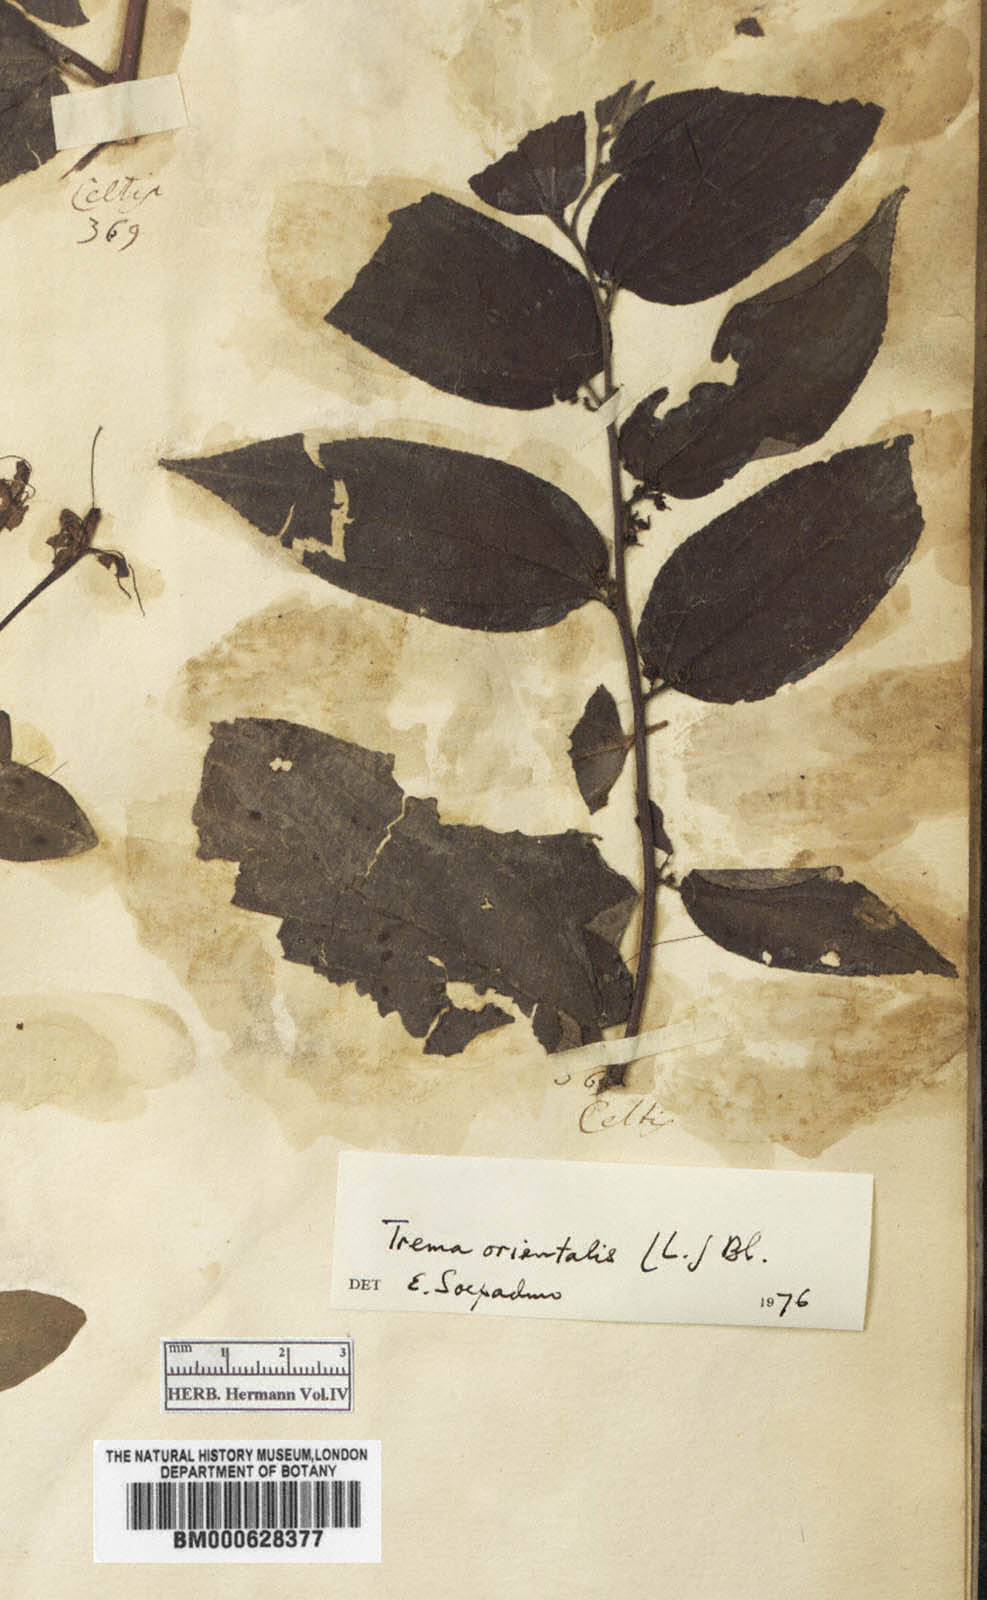 Celtis
369
Celtis
Trema orientalis (L.) Bl.
DET E. Soepadmo
1976
mm 1 2 3
HERB. Hermann Vol.IV
THE NATURAL HISTORY MUSEUM,LONDON
DEPARTMENT OF BOTANY
BM000628377